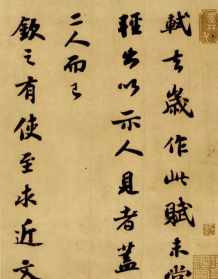 軾去歲作此賦未嘗
輕出以示人見者蓋
二人而已
欽之有使至求近文